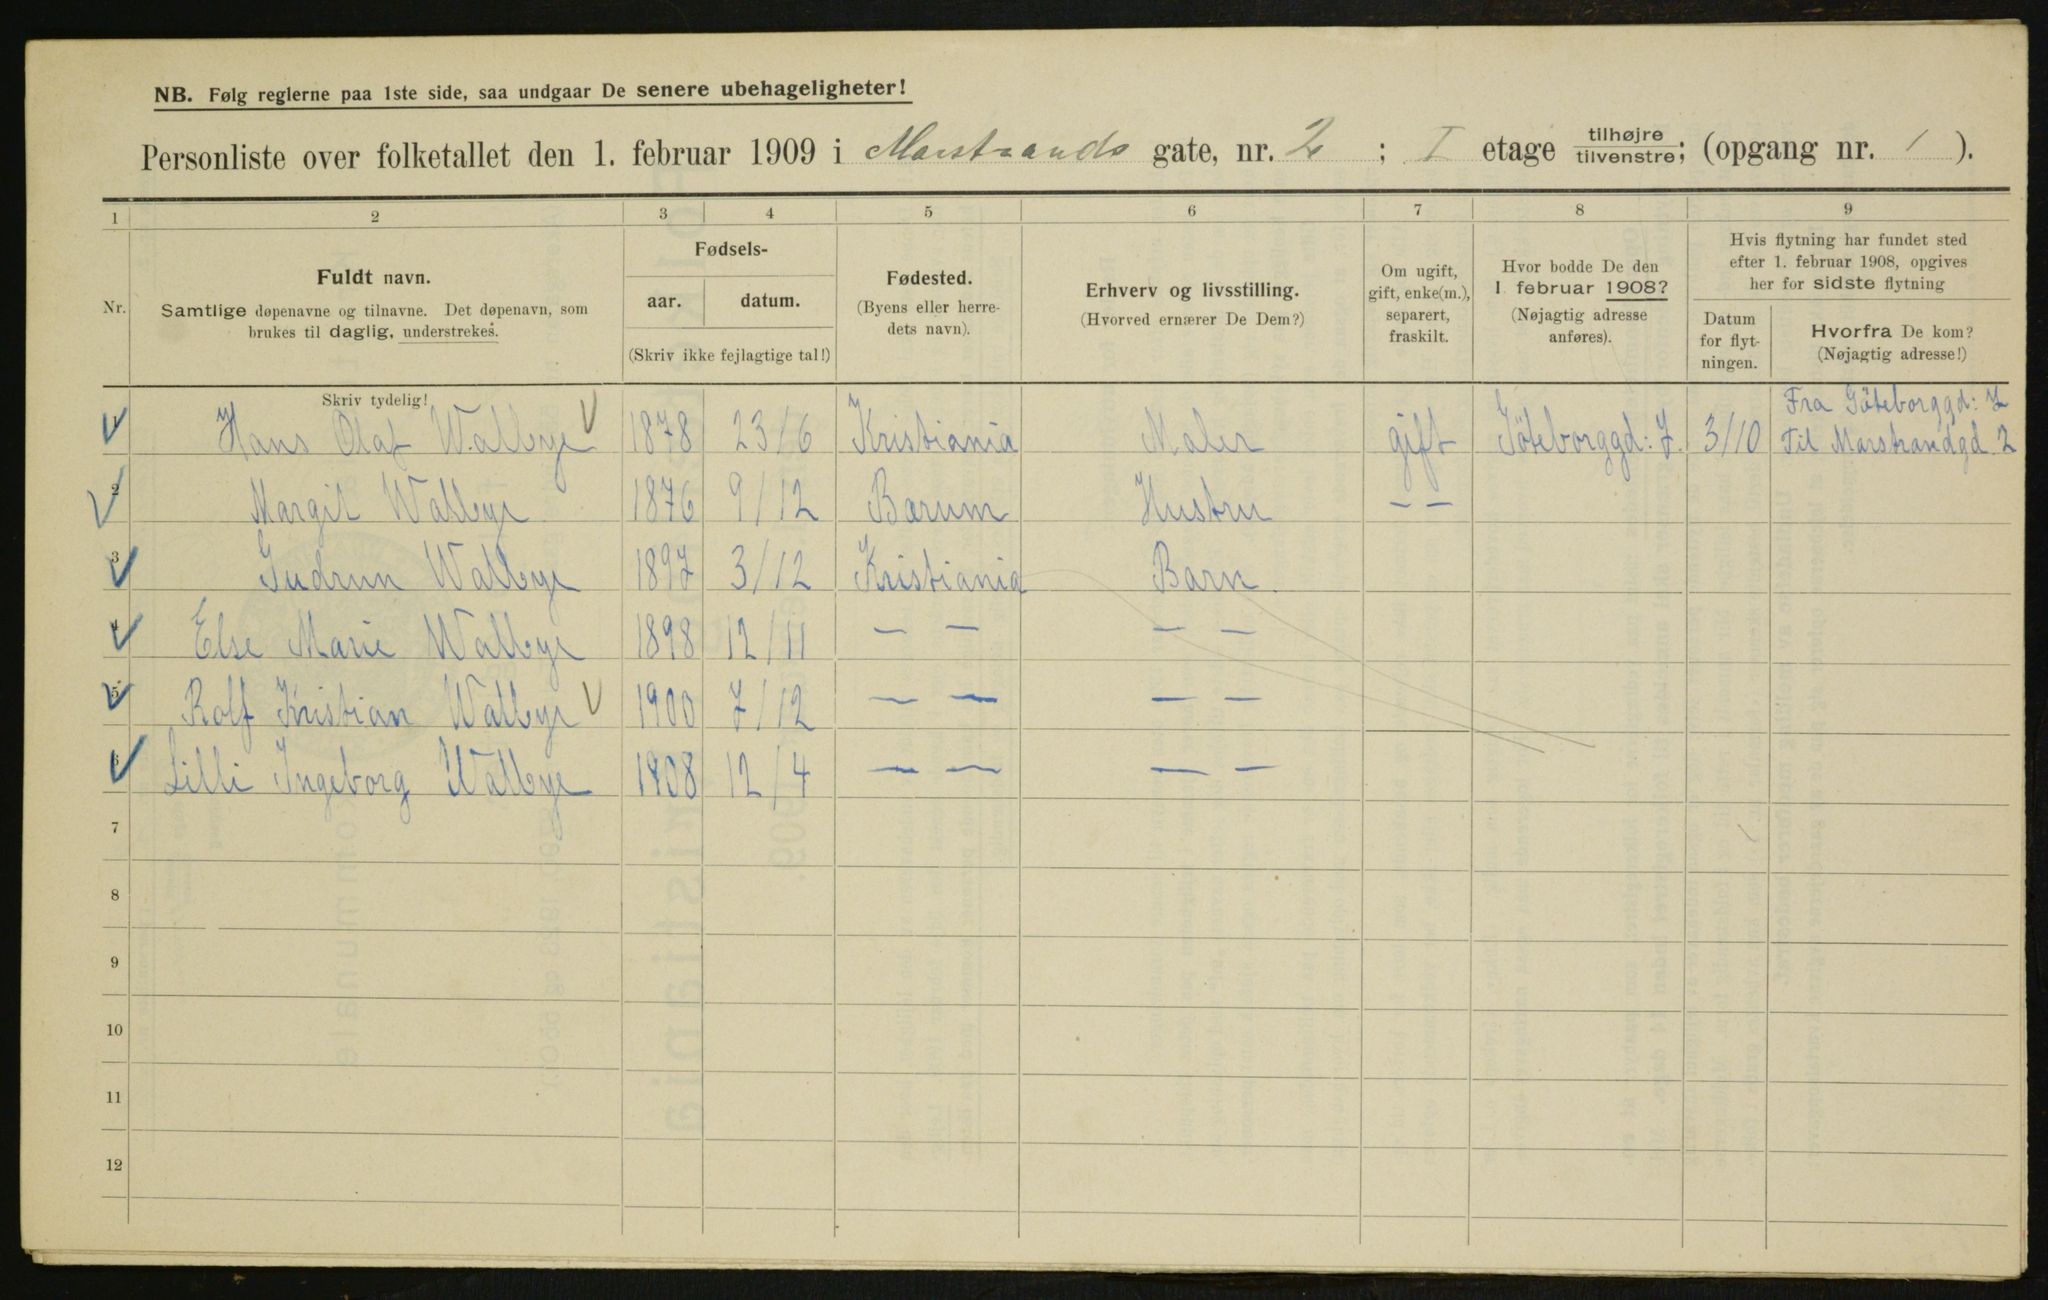 NB. Følg reglerne paa 1ste side, saa undgaar De senere ubehageligheter!
Personliste over folketallet den 1. februar 1909 i Marstrands gate, nr. 2 ; I etage tilhøjre tilvenstre; (opgang nr. 1 ).
1 2 3 4 5 6 7 8 9
Nr.
Fuldt navn.
Samtlige døpenavne og tilnavne. Det døpenavn, som
brukes til daglig, understrekes.
Fødsels-
aar. datum.
(Skriv ikke fejlagtige tal!)
Fødested.
(Byens eller herre-
dets navn).
Erhverv og livsstilling.
(Hvorved ernærer De Dem?)
Om ugift,
gift, enke(m.),
separert,
fraskilt.
Hvor bodde De den
1. februar 1908?
(Nøjagtig adresse
anføres).
Hvis flytning har fundet sted
efter 1. februar 1908, opgives
her for sidste flytning
Datum
for flyt-
ningen.
Hvorfra De kom?
(Nøjagtig adresse!)
Skriv tydelig!
Fra Göteborggd: 7
1 Hans Olaf Walbye 1878 23/6 Kristiania Maler gift Göteborggd: 7. 3/10 Til Marstrandgd. 2
2 Margit Walbye 1876 9/12 Bærum Hustru — —
3 Gudrun Walbye 1897 3/12 Kristiania Barn.
4 Else Marie Walbye 1898 12/11 — — — —
5 Rolf Kristian Walbye 1900 7/12 — — — —
6 Lilli Ingeborg Walbye 1908 12/4 — — — —
7
8
9
10
11
12